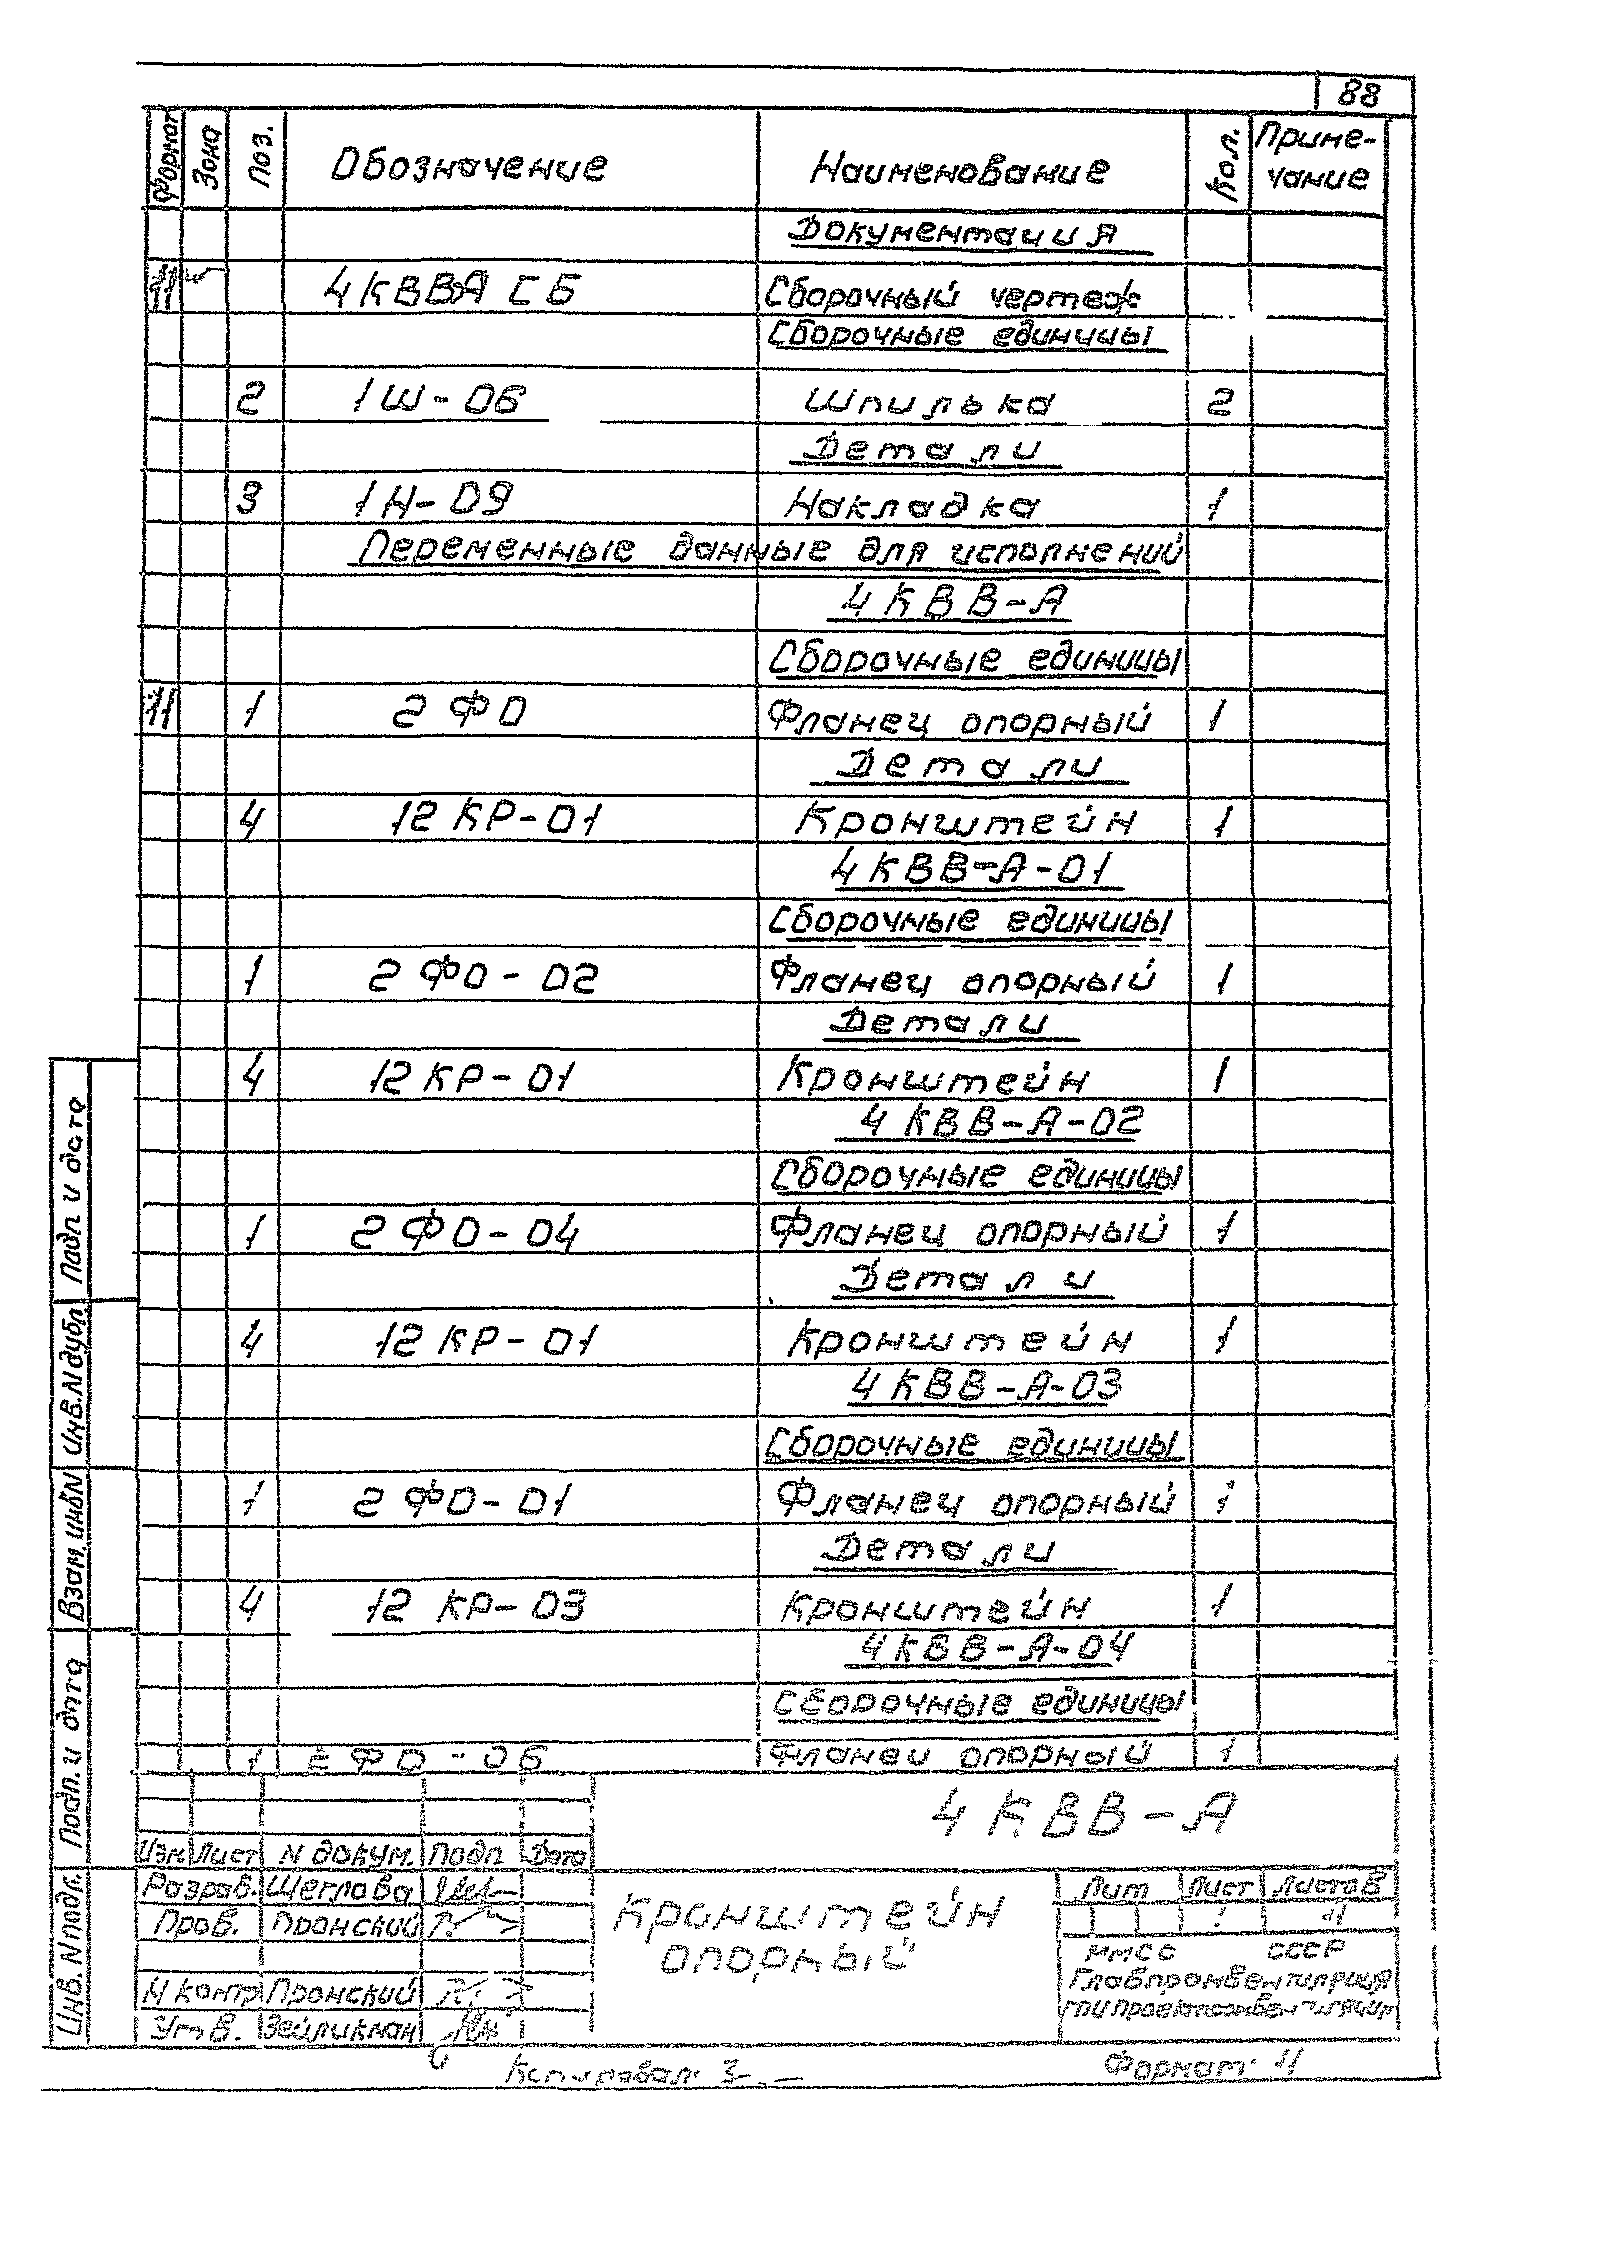 88
Формат Зона Поз. Обозначение Наименование Кол. Приме-
чание
Документация
11 4КВВА СБ Сборочный чертеж
Сборочные единицы
2 1Ш-06 Шпилька 2
Детали
3 1Н-09 Накладка 1
Переменные данные для исполнений
4КВВ-А
Сборочные единицы
11 1 2ФО Фланец опорный 1
Детали
4 12КР-01 Кронштейн 1
4КВВ-А-01
Сборочные единицы
1 2ФО-02 Фланец опорный 1
Детали
4 12КР-01 Кронштейн 1
4КВВ-А-02
Сборочные единицы
1 2ФО-04 Фланец опорный 1
Детали
4 12КР-01 Кронштейн 1
4КВВ-А-03
Сборочные единицы
1 2ФО-01 Фланец опорный 1
Детали
4 12КР-03 Кронштейн 1
4КВВ-А-04
Сборочные единицы
1 2ФО-06 Фланец опорный 1
4КВВ-А
Изм Лист N докум. Подп Дата
Разраб. Щеглова
Пров. Пронский
Н контр Пронский
Утв. Зейликман
Кронштейн
опорный
Лит Лист Листов
ММСС СССР
Главпромвентиляция
Копировал:
Формат: 11
Подп и дата
Инв.N дубл.
Взам. инв N
Подп. и дата
Инв. N подл.